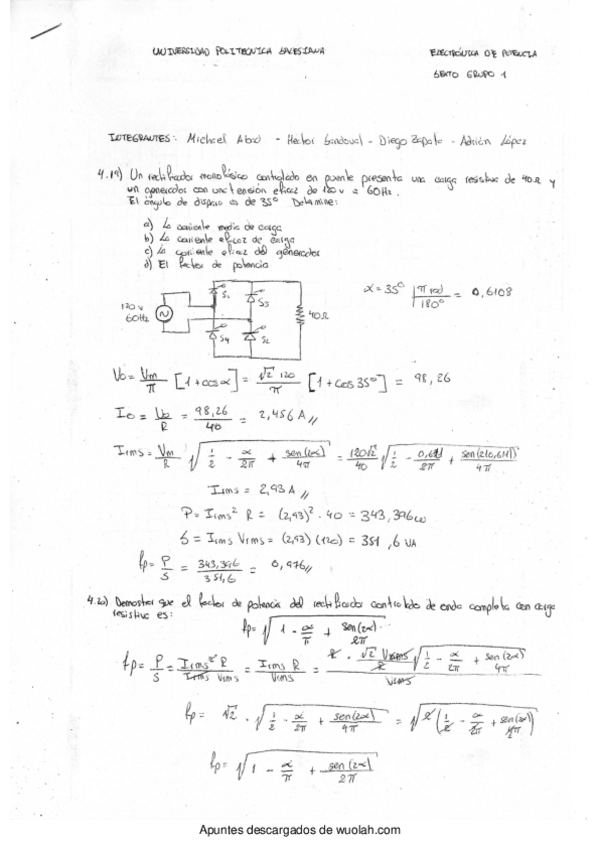 UNIVERSIDAD POLITECNICA SALESIANA
ELECTRÓNICA DE POTENCIA
SEXTO GRUPO 1
INTEGRANTES: Michael Abad - Hector Sandoval - Diego Zapata - Adrián López
4.19) Un rectificador monofásico controlado en puente presenta una carga resistiva de 40Ω y
un generador con una tensión eficaz de 120 v a 60Hz.
El ángulo de disparo es de 35° Determine:
a) La corriente media de carga
b) La corriente eficaz de carga
c) La corriente eficaz del generador
d) El factor de potencia
α = 35° | π rad / 180° = 0,6108
120 v
60Hz
S1
S3
S4
S2
40Ω
Vo = Vm/π [1+cosα] = √2 120/π [1+cos35°] = 98,26
Io = Vo/R = 98,26/40 = 2,456 A //
Irms = Vm/R √(1/2 - α/2π + sen(2α)/4π) = 120√2/40 √(1/2 - 0,611/2π + sen(2(0,611))/4π)
Irms = 2,93 A //
P = Irms² R = (2,93)² . 40 = 343,396 w
S = Irms Vrms = (2,93)(120) = 351,6 VA
fp = P/S = 343,396/351,6 = 0,976 //
4.20) Demostrar que el factor de potencia del rectificador controlado de onda completa con carga
resistiva es:
fp = √(1 - α/π + sen(2α)/2π).
fp = P/S = Irms² R/Irms Vrms = Irms R/Vrms = R . √2 Vrms/R √(1/2 - α/2π + sen(2α)/4π) / Vrms
fp = √2 . √(1/2 - α/2π + sen(2α)/4π) = √(2(1/2 - α/2π + sen(2α)/4π))
fp = √(1 - α/π + sen(2α)/2π)
Apuntes descargados de wuolah.com